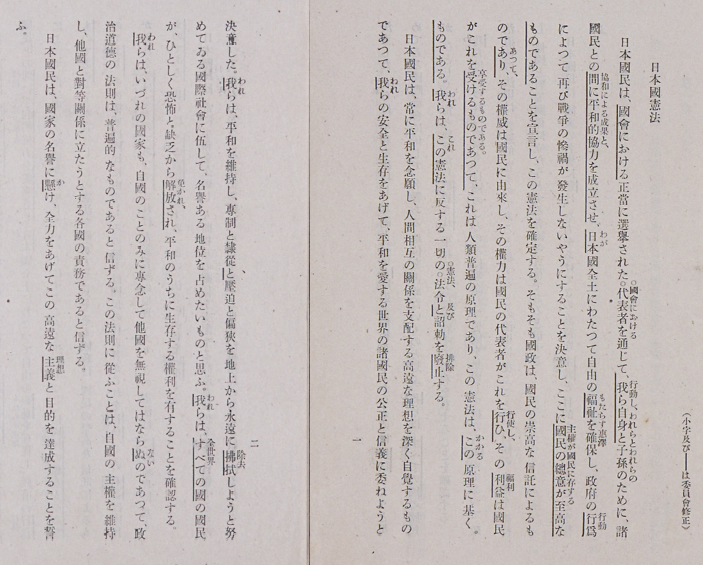 （小字及び――は委員會修正）
日本國憲法
國會における 行動し、われらとわれらの
日本國民は、國會における正當に選擧された○代表者を通じて、我ら自身と子孫のために、諸
協和による成果と、 わが もたらす惠澤 行動
國民との間に平和的協力を成立させ、日本國全土にわたつて自由の福祉を確保し、政府の行爲
主權が國民に存する
によつて再び戰爭の慘禍が發生しないやうにすることを決意し、ここに國民の總意が至高な
ものであることを宣言し、この憲法を確定する。そもそも國政は、國民の崇高な信託によるも
あつて、 行使し、 福利
のであり、その權威は國民に由來し、その權力は國民の代表者がこれを行ひ、その利益は國民
享受するものである。 かかる
がこれを受けるものであつて、これは人類普遍の原理であり、この憲法は、この原理に基く
われ これ 憲法、 及び 排除
ものである。我らは、この憲法に反する一切の○法令と詔勅を廢止する。
日本國民は、常に平和を念願し、人間相互の關係を支配する高遠な理想を深く自覺するもの
われ
であつて、我らの安全と生存をあげて、平和を愛する世界の諸國民の公正と信義に委ねようと
一
われ 、 除去
決意した。我らは、平和を維持し、專制と隷從と壓迫と偏狹を地上から永遠に拂拭しようと努
われ 全世界
めてゐる國際社會に伍して、名譽ある地位を占めたいものと思ふ。我らは、すべての國の國民
免かれ、
が、ひとしく恐怖と缺乏から解放され、平和のうちに生存する權利を有することを確認する。
われ ない
我らは、いづれの國家も、自國のことのみに專念して他國を無視してはならぬのであつて、政
治道德の法則は、普遍的なものであると信ずる。この法則に從ふことは、自國の主權を維持
し、他國と對等關係に立たうとする各國の責務であると信ずる。
か 理想
日本國民は、國家の名譽に懸け、全力をあげてこの高遠な主義と目的を達成することを誓
ふ。
二